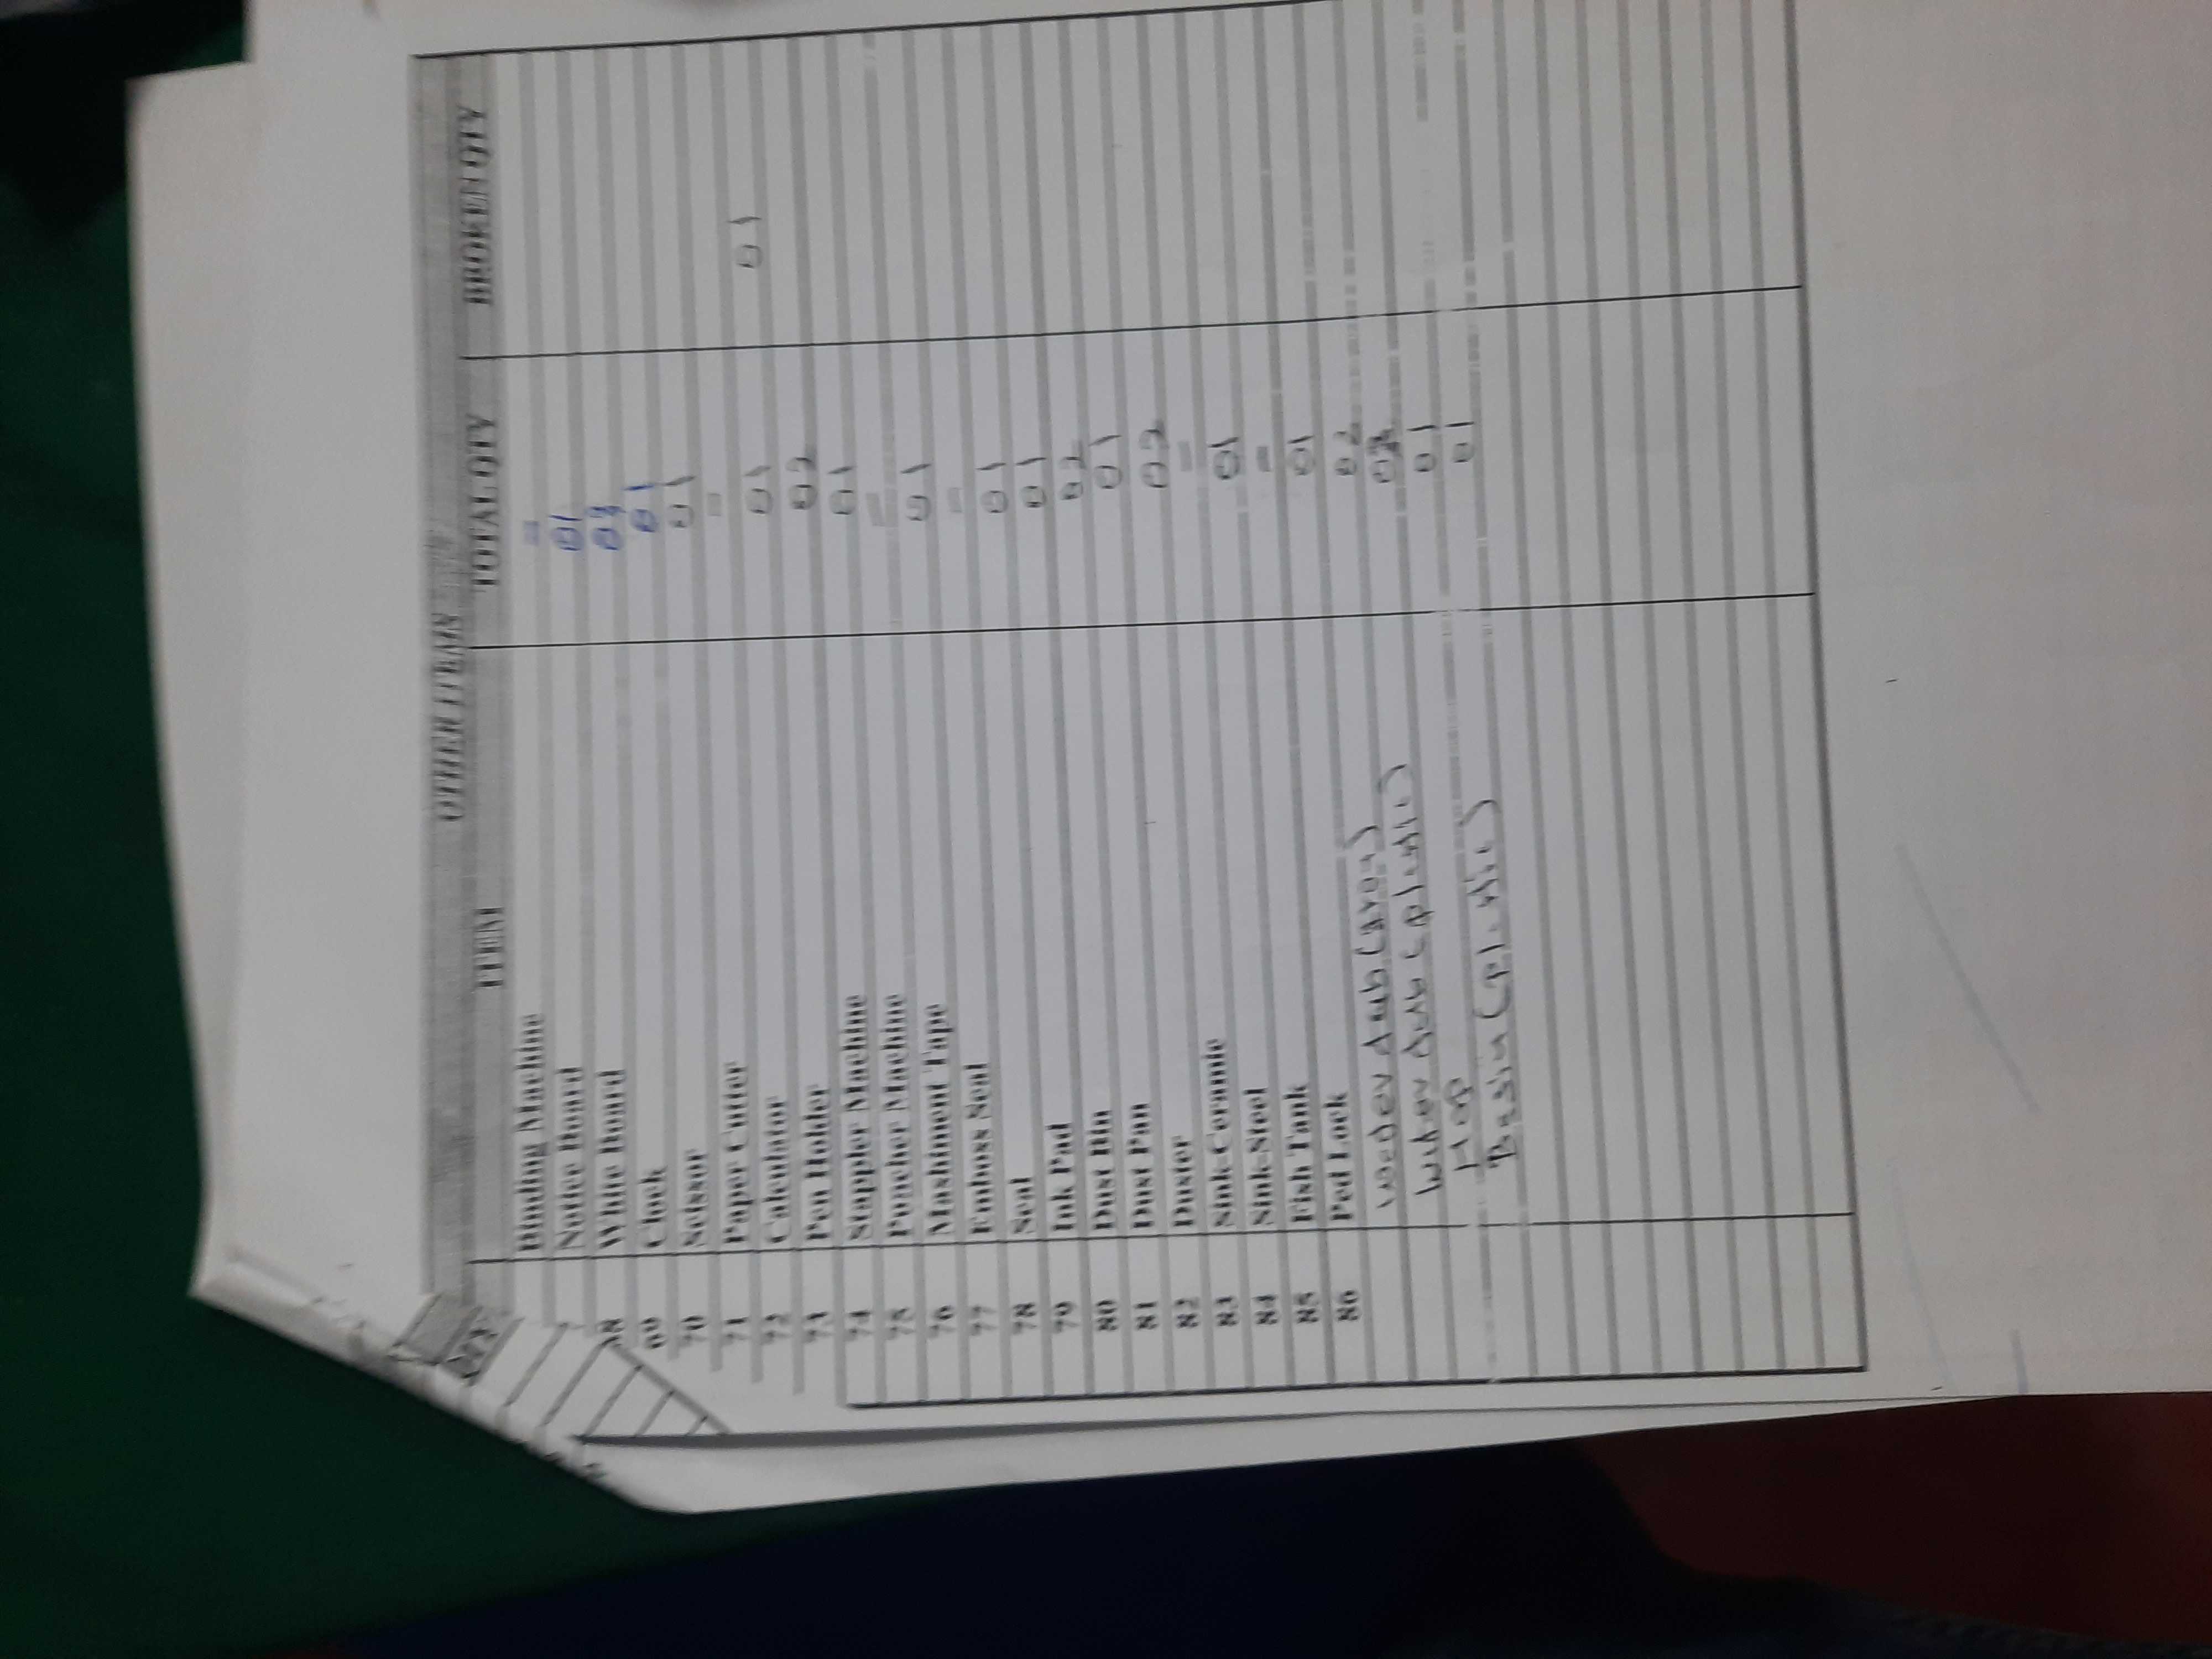 OTHER ITEMS
ITEM TOTAL QTY BROKEN QTY
Binding Machine =
Notice Board 01
68 White Board
69 Clock 01
70 Scissor 01
71 Paper Cutter =
72 Calculator 01 01
73 Pen Holder 02
74 Stapler Machine 01
75 Puncher Machine =
76 Mashiment Tape 01
77 Emboss Seal =
78 Seal 01
79 Ink Pad 01
80 Dust Bin 02
81 Dust Pan 01
82 Duster 02
83 Sink-Ceramic =
84 Sink-Steel 01
85 Fish Tank =
86 Ped Lock 01
02
(plastic)
01
Basin (plastic) 01